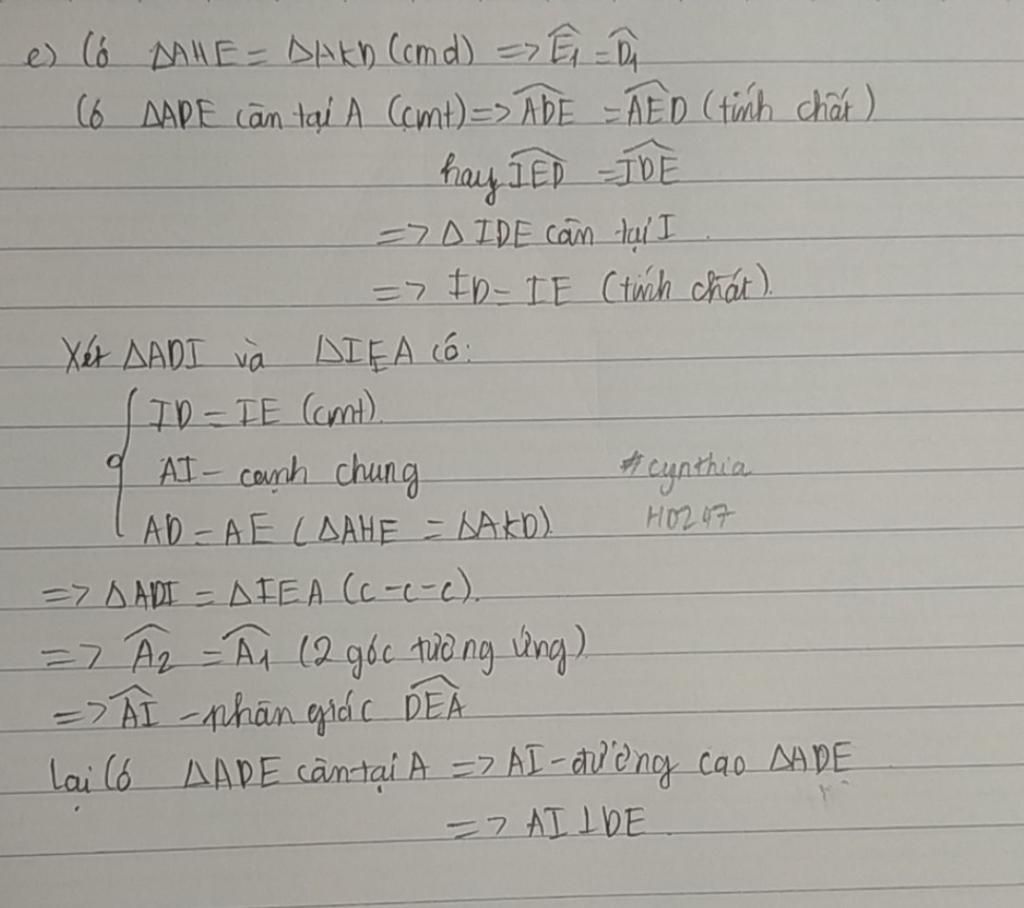 e) Có ΔAHE = ΔAKD (cmd) => Ê₁ = D̂₁
Có ΔADE cân tại A (cmt) => \widehat{ADE} = \widehat{AED} (tính chất)
hay \widehat{IED} = \widehat{IDE}
=> Δ IDE cân tại I.
=> ID = IE (tính chất).
Xét ΔADI và ΔIEA có:
ID = IE (cmt).
AI - cạnh chung
#cynthia
AD = AE (ΔAHE = ΔAKD).
H0247
=> ΔADI = ΔIEA (c-c-c).
=> Â₂ = Â₁ (2 góc tương ứng)
=> \widehat{AI} - phân giác \widehat{DEA}
Lại có ΔADE cân tại A => AI - đường cao ΔADE
=> AI ⊥ DE